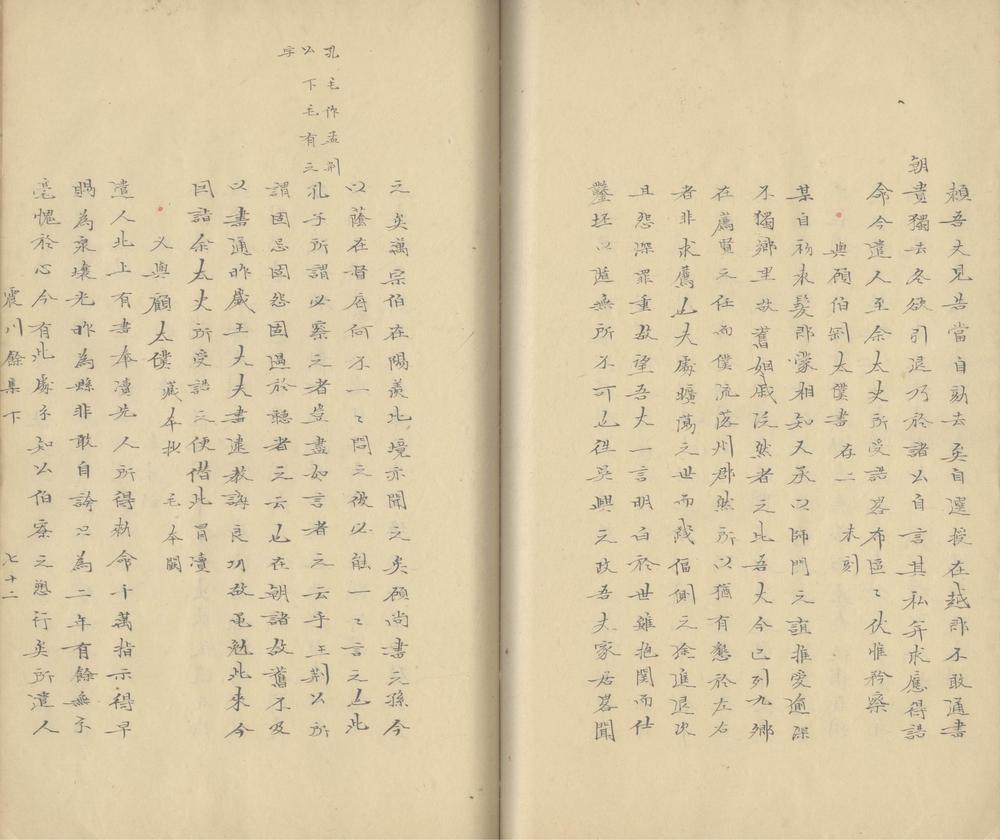 賴吾丈見告當自劾去矣自選授在越郡不敢通書
朝貴獨去冬欲引退乃於諸公自言其私并求應得誥
命今遣人至余太史所受誥畧布區〻伏惟矜察
與顧伯剛太僕書 存二 未刻
某自初束髮即蒙相知又承以師門之誼推愛逾深
不獨鄉里故舊姻戚泛然者之比吾丈今已列九卿
在薦賢之任而僕流落州郡然所以猶有懇於左右
者非求薦也大處曠蕩之世而踐偪側之途進退次
且怨深罪重故望吾丈一言明白於世雖抱關而仕
鑿坯以遁無所不可也往吳興之政吾丈家居畧聞
之矣萬宗伯在陽羨比境亦聞之矣顧尚書之孫今
以蔭在者府何不一〻問之彼必能一〻言之也此
孔子所謂必察之者豈盡如言者之云乎王荆公所
謂固忌固怨固過於聽者之云也在朝諸故舊不及
以書通昨歲王大夫書遠教誨良切故黽勉此來今
回詣余太史所受誥之便偕此冐瀆
又與顧太僕 藏本抄 毛本闕
遣人北上有書奉瀆先人所得勅命十萬指示得早
賜為泉壤光昨為縣非敢自論只為二年有餘無示
毫愧於心今有此處子知公伯寮之愬行矣所遣人
孔毛作孟荆
公下毛有之
字
震川餘集下
七十二